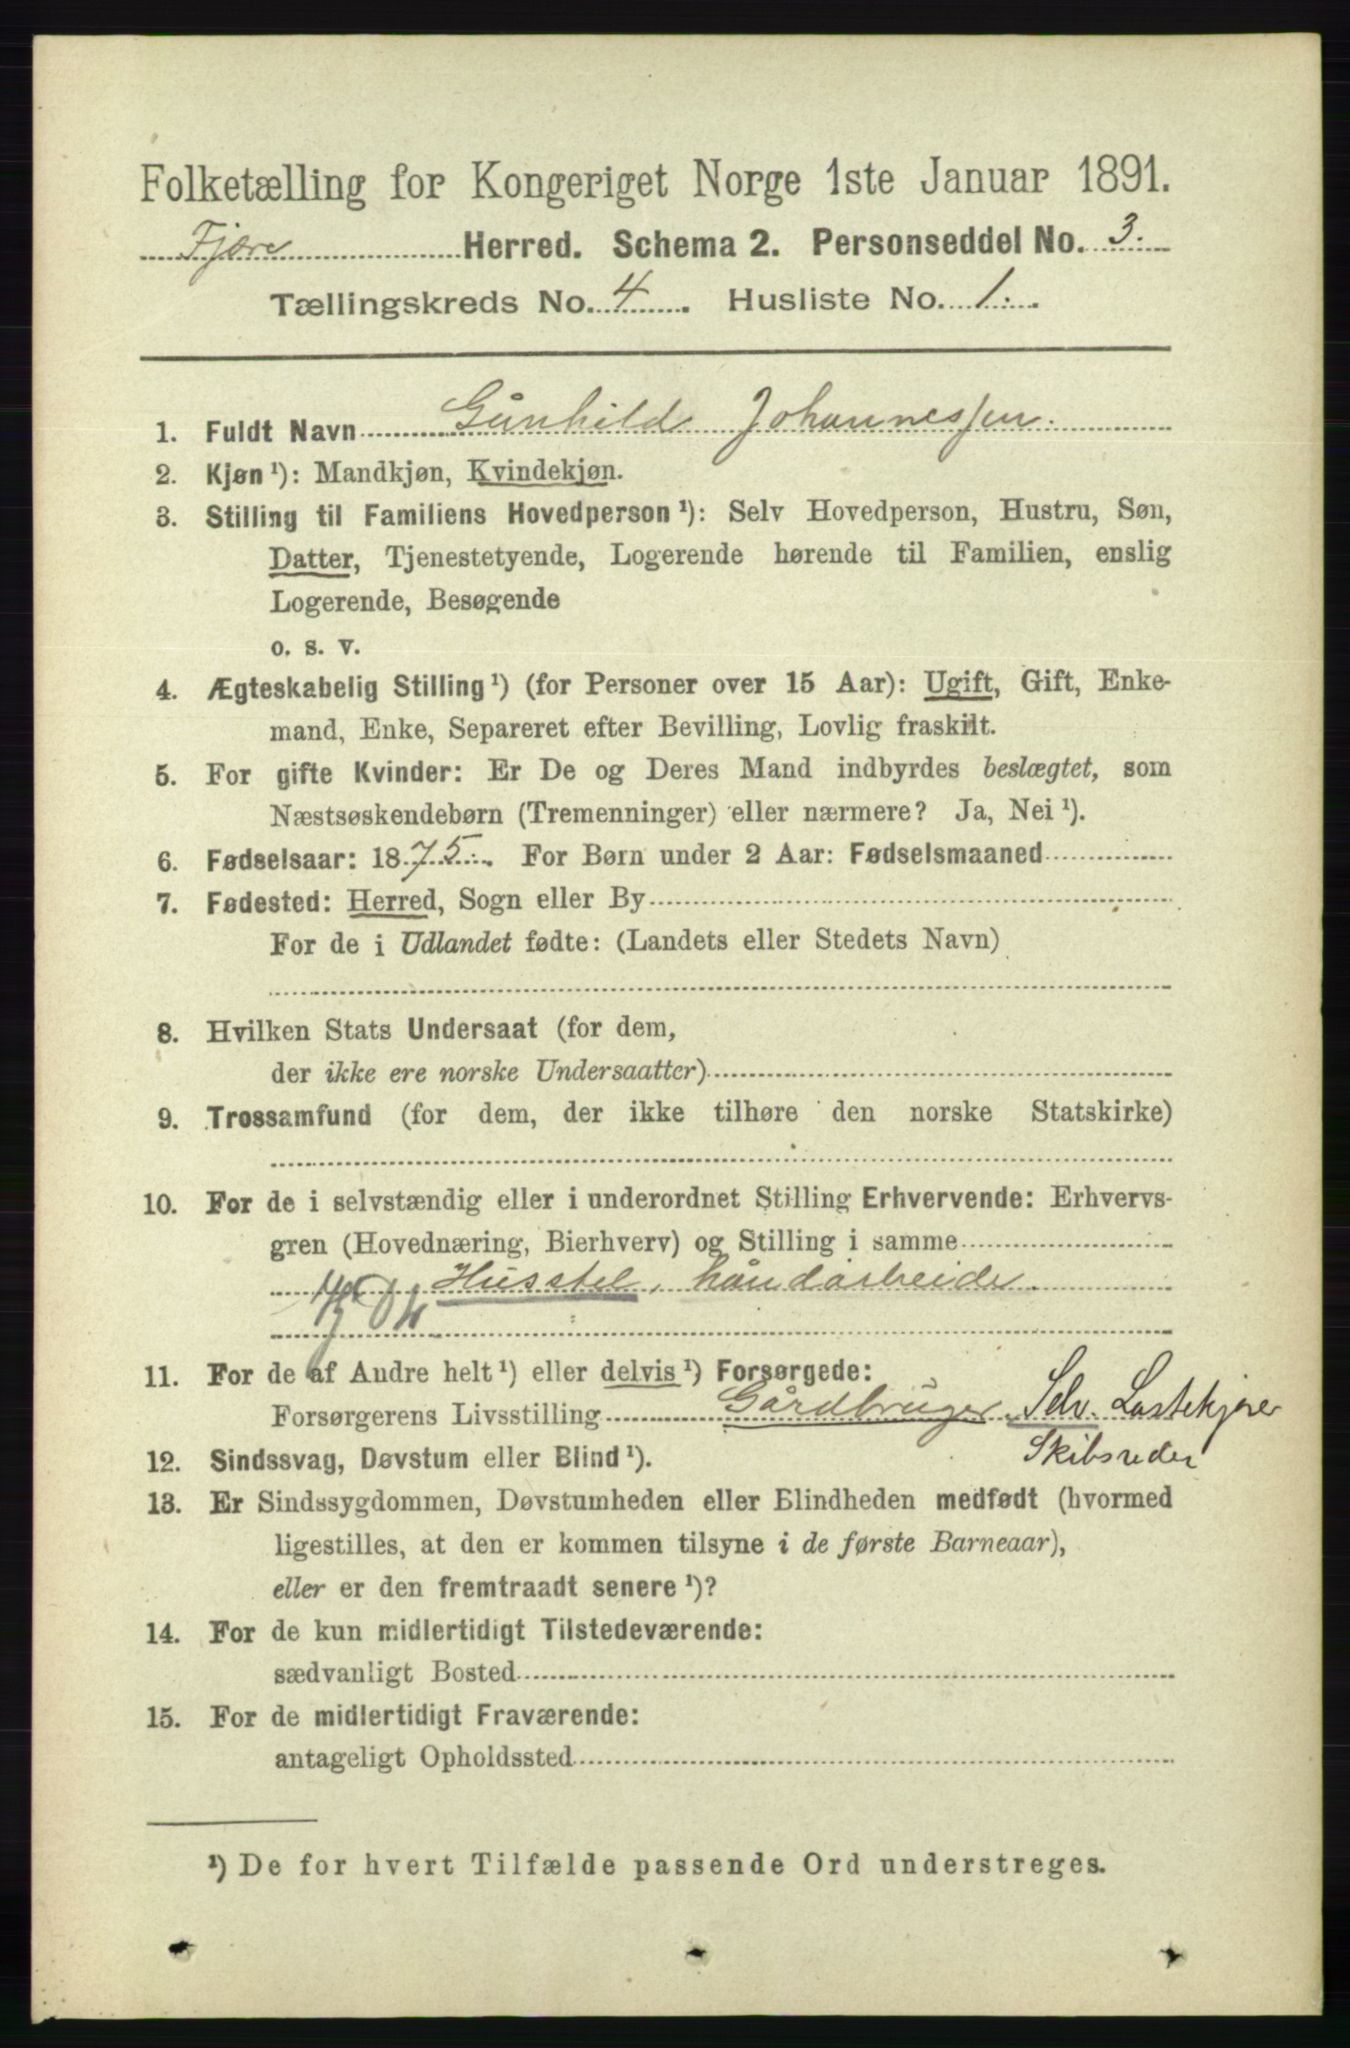 Folketælling for Kongeriget Norge 1ste Januar 1891.
Fjære Herred. Schema 2. Personseddel No. 3.
Tællingskreds No. 4. Husliste No. 1.
1. Fuldt Navn Gunhild Johannessen.
2. Kjøn ¹): Mandkjøn, Kvindekjøn.
3. Stilling til Familiens Hovedperson ¹): Selv Hovedperson, Hustru, Søn,
Datter, Tjenestetyende, Logerende hørende til Familien, enslig
Logerende, Besøgende
o. s. v.
4. Ægteskabelig Stilling ¹) (for Personer over 15 Aar): Ugift, Gift, Enke-
mand, Enke, Separeret efter Bevilling, Lovlig fraskilt.
5. For gifte Kvinder: Er De og Deres Mand indbyrdes beslægtet, som
Næstsøskendebørn (Tremenninger) eller nærmere? Ja, Nei ¹).
6. Fødselsaar: 1875. For Børn under 2 Aar: Fødselsmaaned
7. Fødested: Herred, Sogn eller By
For de i Udlandet fødte: (Landets eller Stedets Navn)
8. Hvilken Stats Undersaat (for dem,
der ikke ere norske Undersaatter)
9. Trossamfund (for dem, der ikke tilhøre den norske Statskirke)
10. For de i selvstændig eller i underordnet Stilling Erhvervende: Erhvervs-
gren (Hovednæring, Bierhverv) og Stilling i samme
Husstel, håndarbeide.
11. For de af Andre helt ¹) eller delvis ¹) Forsørgede:
Forsørgerens Livsstilling Gårdbruger, Selv.
Skibsreder
12. Sindssvag, Døvstum eller Blind ¹).
13. Er Sindssygdommen, Døvstumheden eller Blindheden medfødt (hvormed
ligestilles, at den er kommen tilsyne i de første Barneaar),
eller er den fremtraadt senere ¹)?
14. For de kun midlertidigt Tilstedeværende:
sædvanligt Bosted
15. For de midlertidigt Fraværende:
antageligt Opholdssted
¹) De for hvert Tilfælde passende Ord understreges.